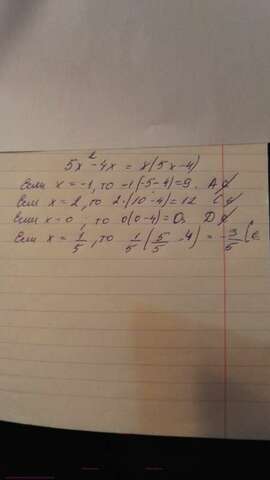 5x²-4x = x(5x-4)
Если x = -1, то -1(-5-4)=9. А
Если x = 2, то 2·(10-4)=12 С
Если x = 0, то 0(0-4)=0, D
Если x = 1/5, то 1/5(5/5-4) = -3/5 (